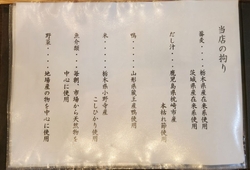 当店の拘り
蕎麦・・・栃木県産在来系使用
茨城県産在来系使用
だし汁・・・鹿児島県枕崎市産
本枯れ節使用
鴨・・・山形県蔵王産鴨使用
米・・・栃木県小野寺産
こしひかり使用
魚介類・・・毎朝、市場から天然物を
中心に使用
野菜・・・地場産の物を中心に使用